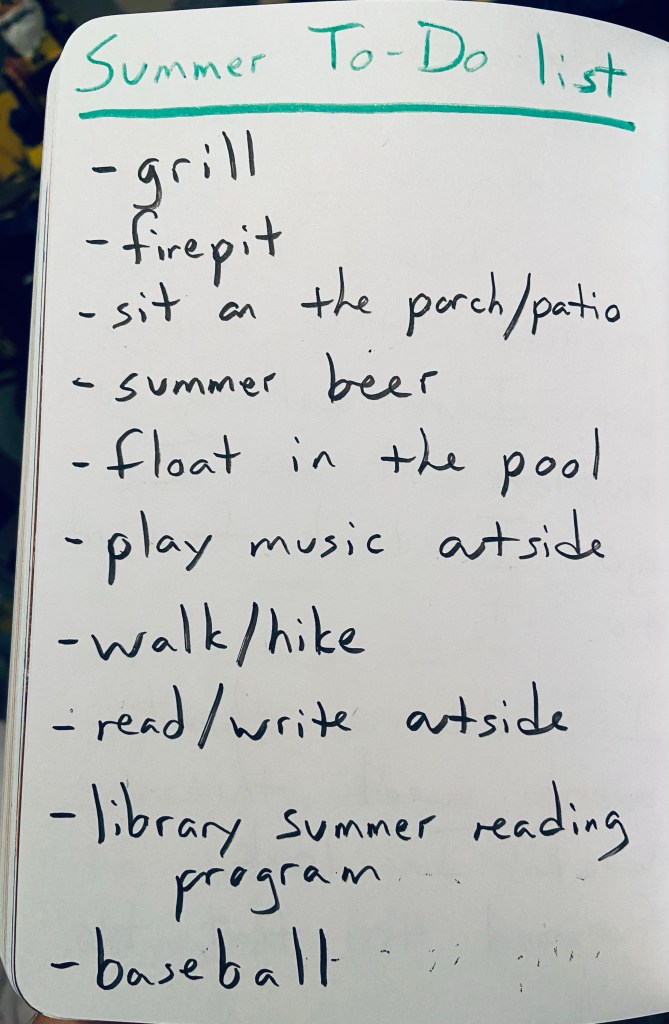 Summer To-Do list
- grill
- firepit
- sit on the porch/patio
- summer beer
- float in the pool
- play music outside
- walk/hike
- read/write outside
- library summer reading
program
- baseball